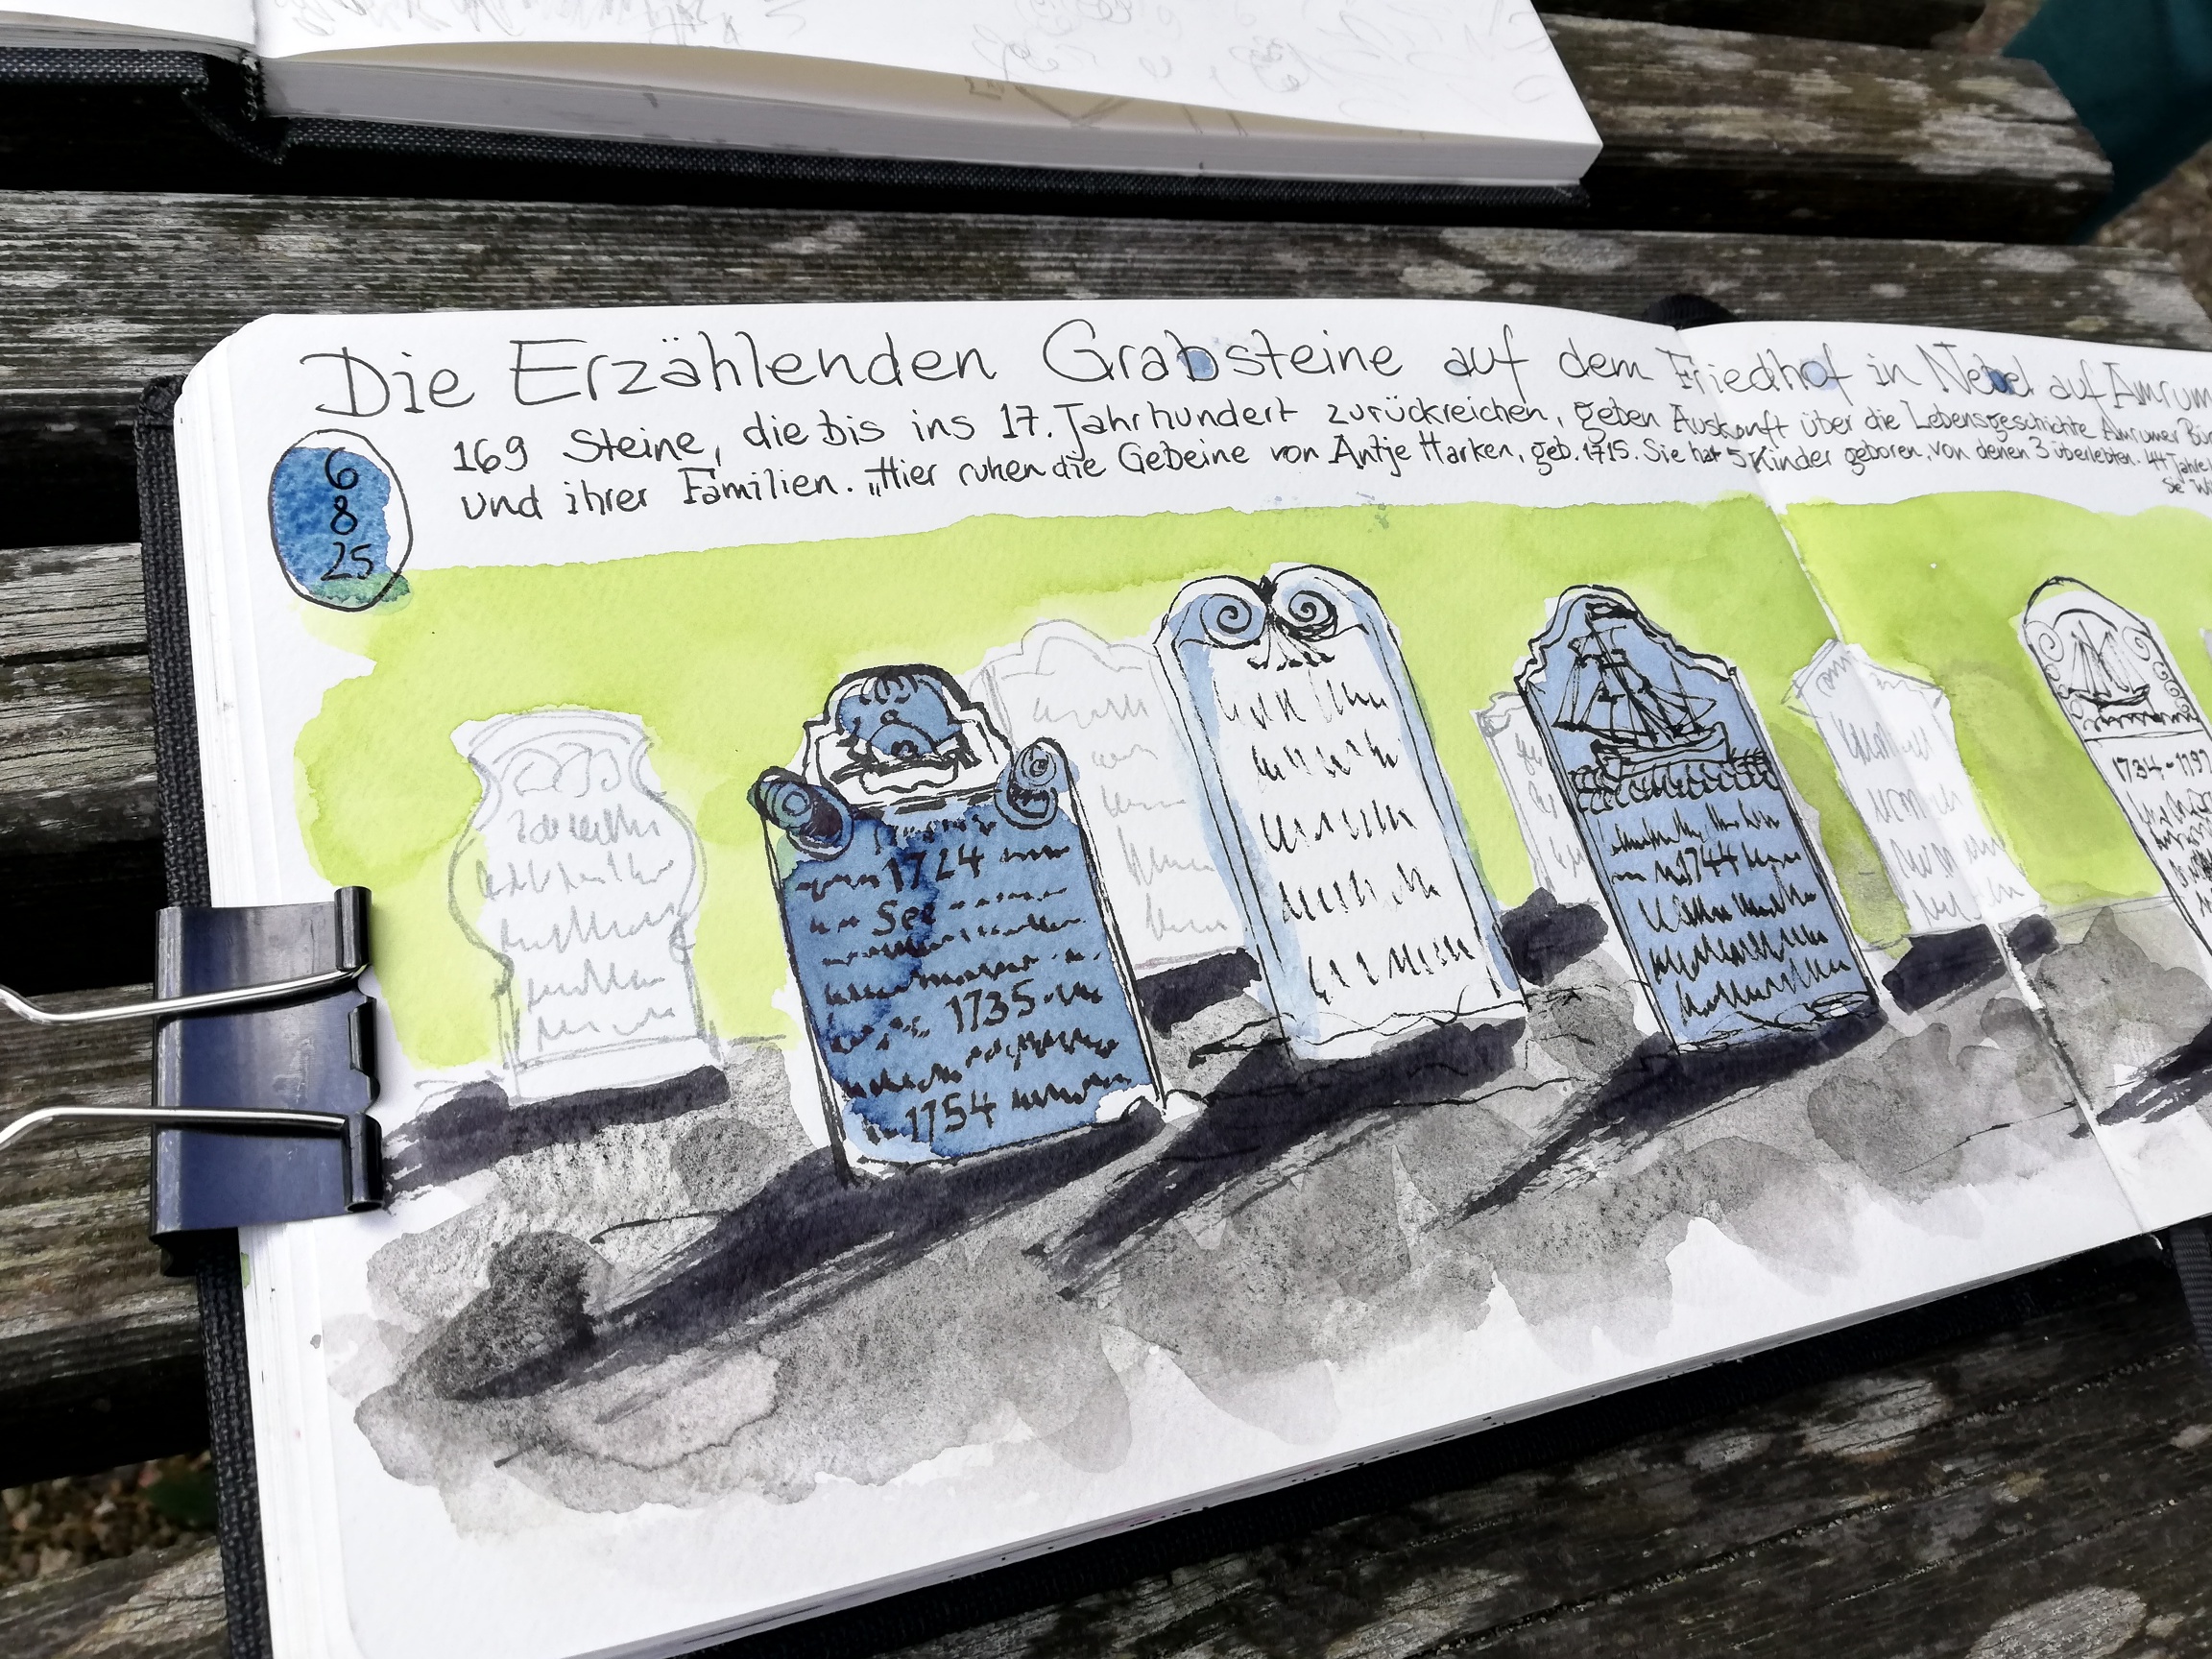 Die Erzählenden Grabsteine auf dem Friedhof in Nebel auf Amrum
169 Steine, die bis ins 17. Jahrhundert zurückreichen, geben Auskunft über die Lebensgeschichte Amrumer
und ihrer Familien. „Hier ruhen die Gebeine von Antje Harken, geb. 1715. Sie hat 5 Kinder geboren, von denen 3 überlebten. 44 Jahre
Sie
6
8
25
1724
See
1735
1754
1744